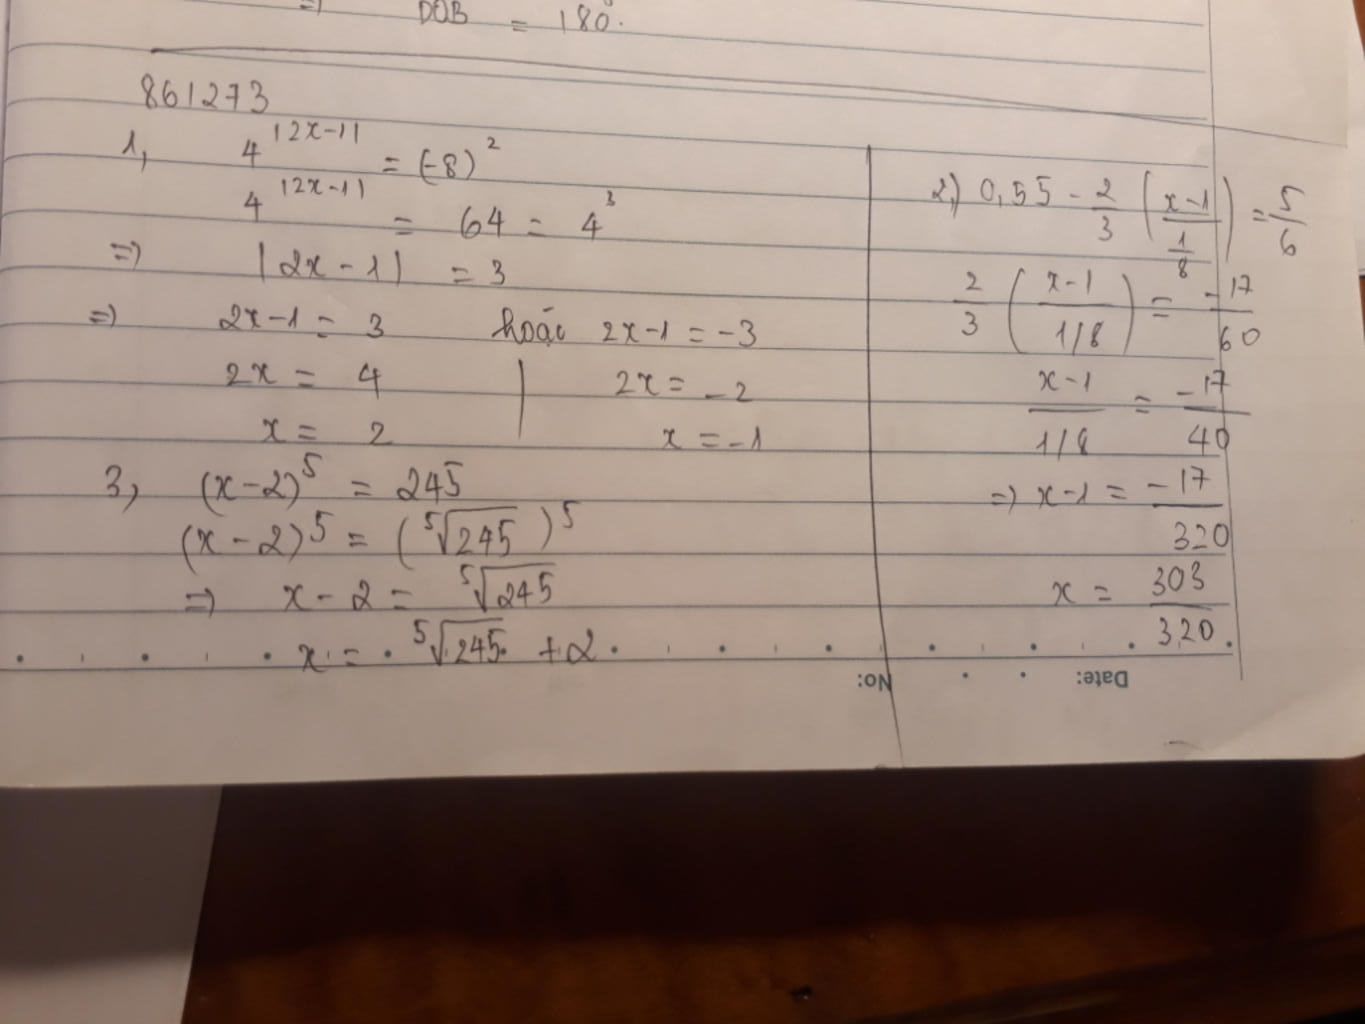 => DOB = 180°.
861273
1, 4^|2x-1| = (-8)^2
4^|2x-1| = 64 = 4^3
=> |2x-1| = 3
=> 2x-1 = 3 hoặc 2x-1 = -3
2x = 4 | 2x = -2
x = 2 x = -1
3, (x-2)^5 = 245
(x-2)^5 = (⁵√245)^5
=> x-2 = ⁵√245
x = ⁵√245 + 2
2,) 0,55 - 2/3 ((x-1)/(1/8)) = 5/6
2/3 ((x-1)/(1/8)) = -17/60
(x-1)/(1/8) = -17/40
=> x-1 = -17/320
x = 303/320
No:
Date: